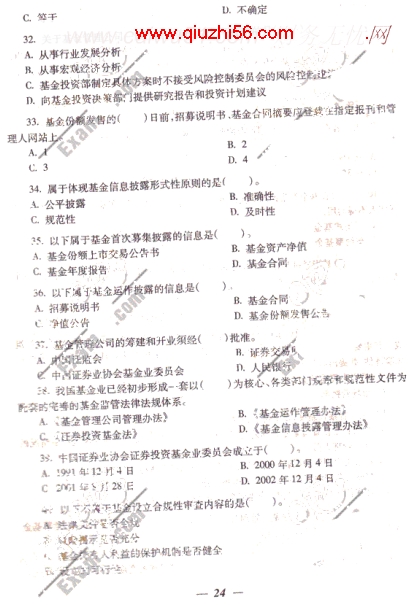 www.qiuzhi56.com
C. 若干
D. 不确定
32.
A. 从事行业发展分析
B. 从事宏观经济分析
C. 基金投资部制定具体方案时不接受风险控制委员会的风险控制建议
D. 向基金投资决策部门提供研究报告和投资计划建议
33. 基金份额发售的( )日前,招募说明书、基金合同摘要应登载在指定报刊和管
理人网站上。
A. 1
B. 2
C. 3
D. 4
34. 属于体现基金信息披露形式性原则的是( )。
A. 公平披露
B. 准确性
C. 规范性
D. 及时性
35. 以下属于基金首次募集披露的信息是( )。
A. 基金份额上市交易公告书
B. 基金资产净值
C. 基金年度报告
D. 基金合同
36. 以下属于基金运作披露的信息是( )。
A. 招募说明书
B. 基金合同
C. 净值公告
D. 基金份额发售公告
37. 基金管理公司的筹建和开业须经( )批准。
A. 中国证监会
B. 证券交易所
C. 中国证券业协会基金业委员会
D. 人民银行
38. 我国基金业已经初步形成一套以( )为核心、各类部门规章和规范性文件为
配套的完善的基金监管法律法规体系。
A. 《基金管理公司管理办法》
B. 《基金运作管理办法》
C. 《证券投资基金法》
D. 《基金信息披露管理办法》
39. 中国证券业协会证券投资基金业委员会成立于( )。
A. 1991 年 12 月 4 日
B. 2000 年 12 月 4 日
C. 2001 年 8 月 28 日
D. 2002 年 12 月 4 日
40. 以下不属于基金设立合规性审查内容的是( )。
是否齐全
是否充分
基金持有人利益的保护机制是否健全
— 24 —